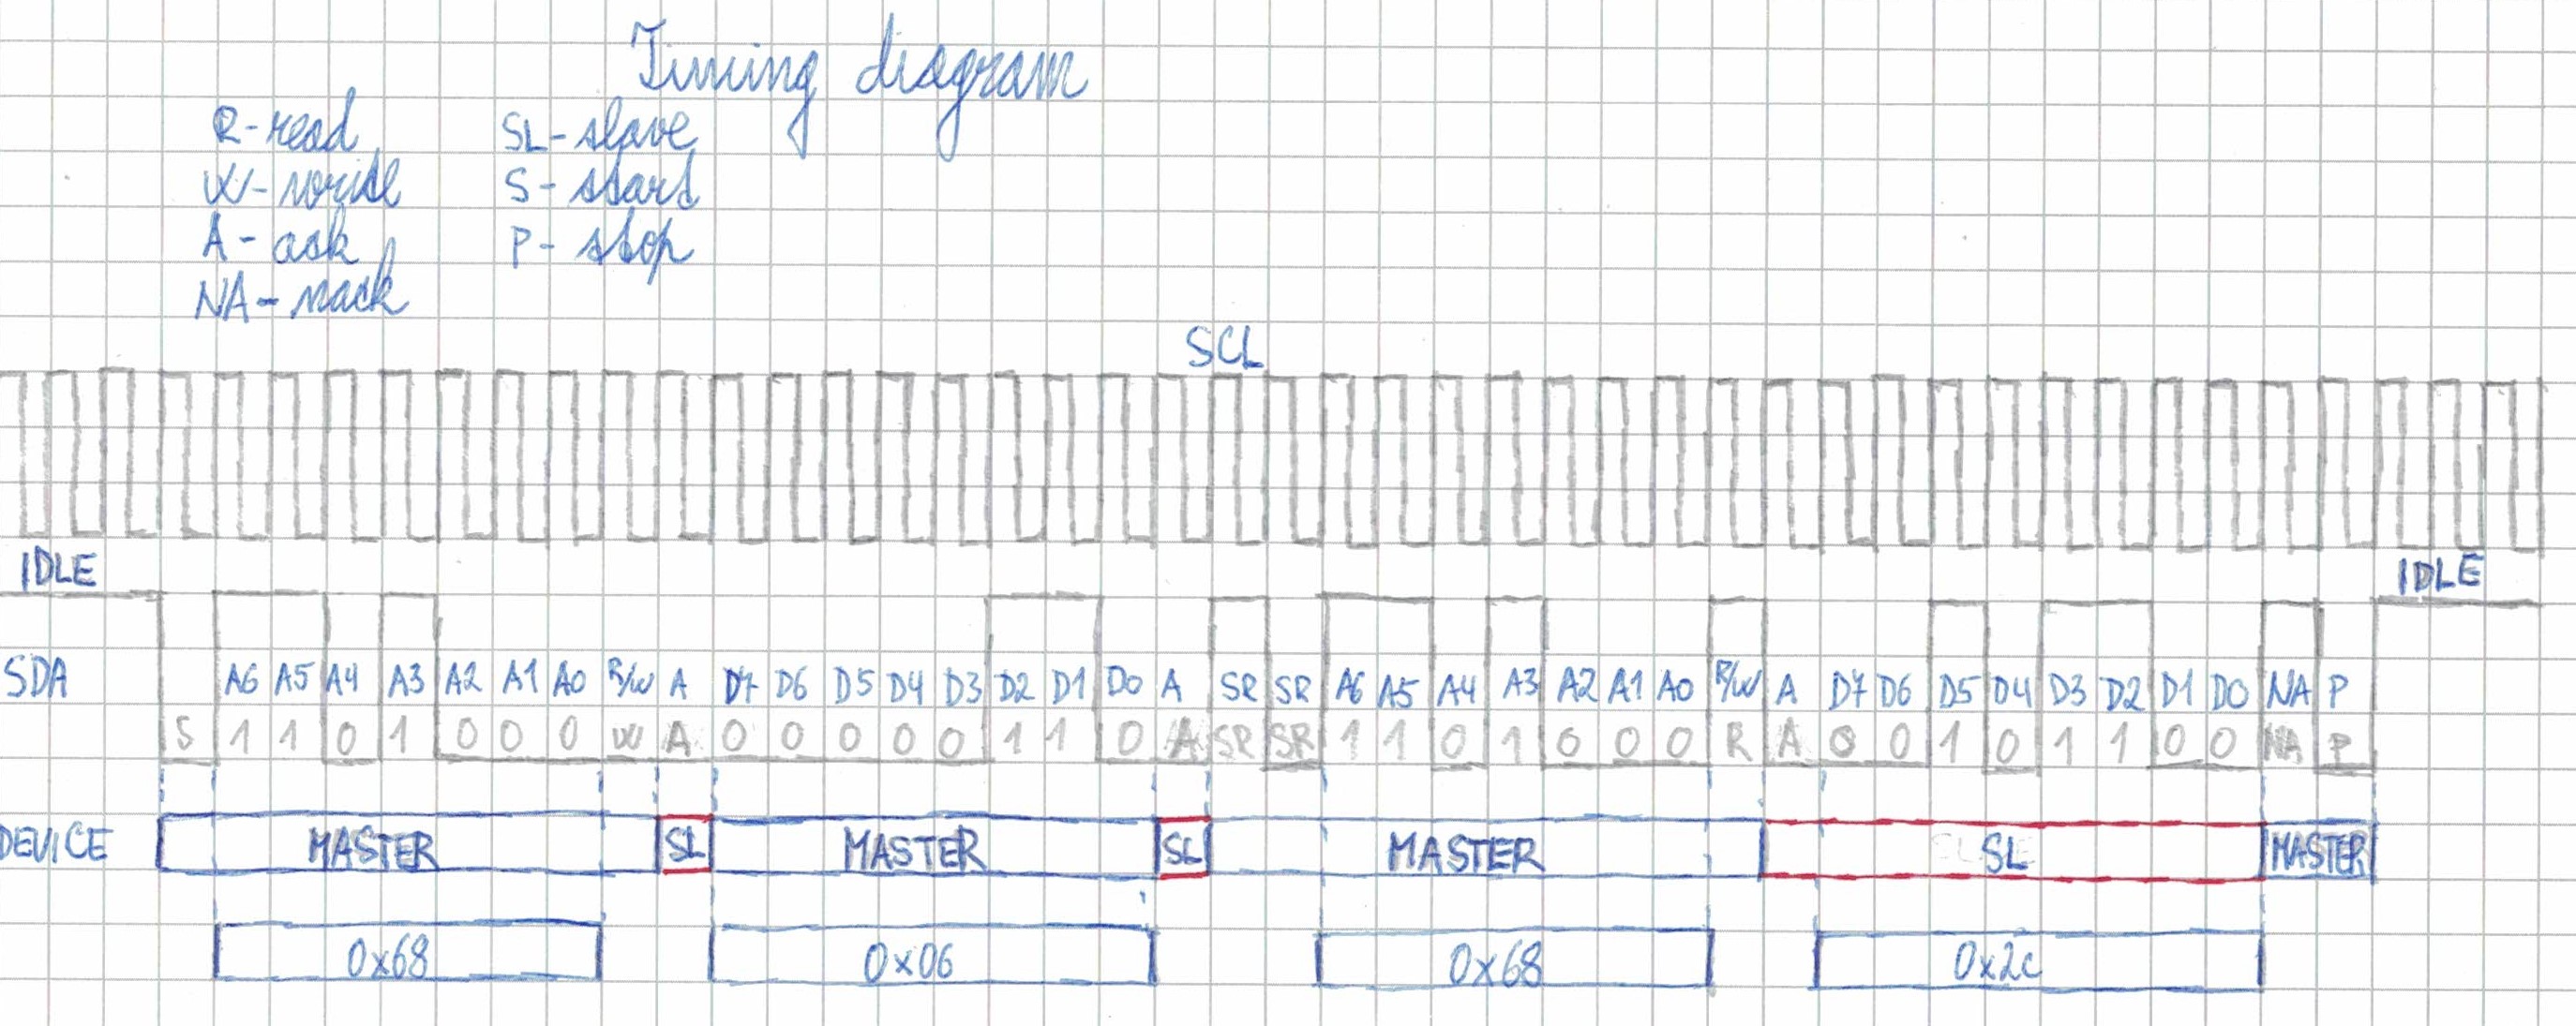 Timing diagram
R-read SL-slave
W-write S-start
A-ask P-stop
NA-nack
SCL
IDLE IDLE
SDA A6 A5 A4 A3 A2 A1 A0 R/W A D7 D6 D5 D4 D3 D2 D1 D0 A SR SR A6 A5 A4 A3 A2 A1 A0 R/W A D7 D6 D5 D4 D3 D2 D1 D0 NA P
S 1 1 0 1 0 0 0 W A 0 0 0 0 0 1 1 0 A SR SR 1 1 0 1 0 0 0 R A 0 0 1 0 1 1 0 0 NA P
DEVICE MASTER SL MASTER SL MASTER SL MASTER
0x68 0x06 0x68 0x2c